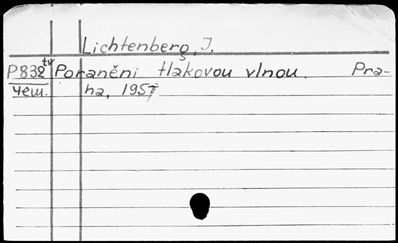 Lichtenberg, J.
P832tv Poranění tlakovou vlnou. Pra-
чеш. ha, 1957